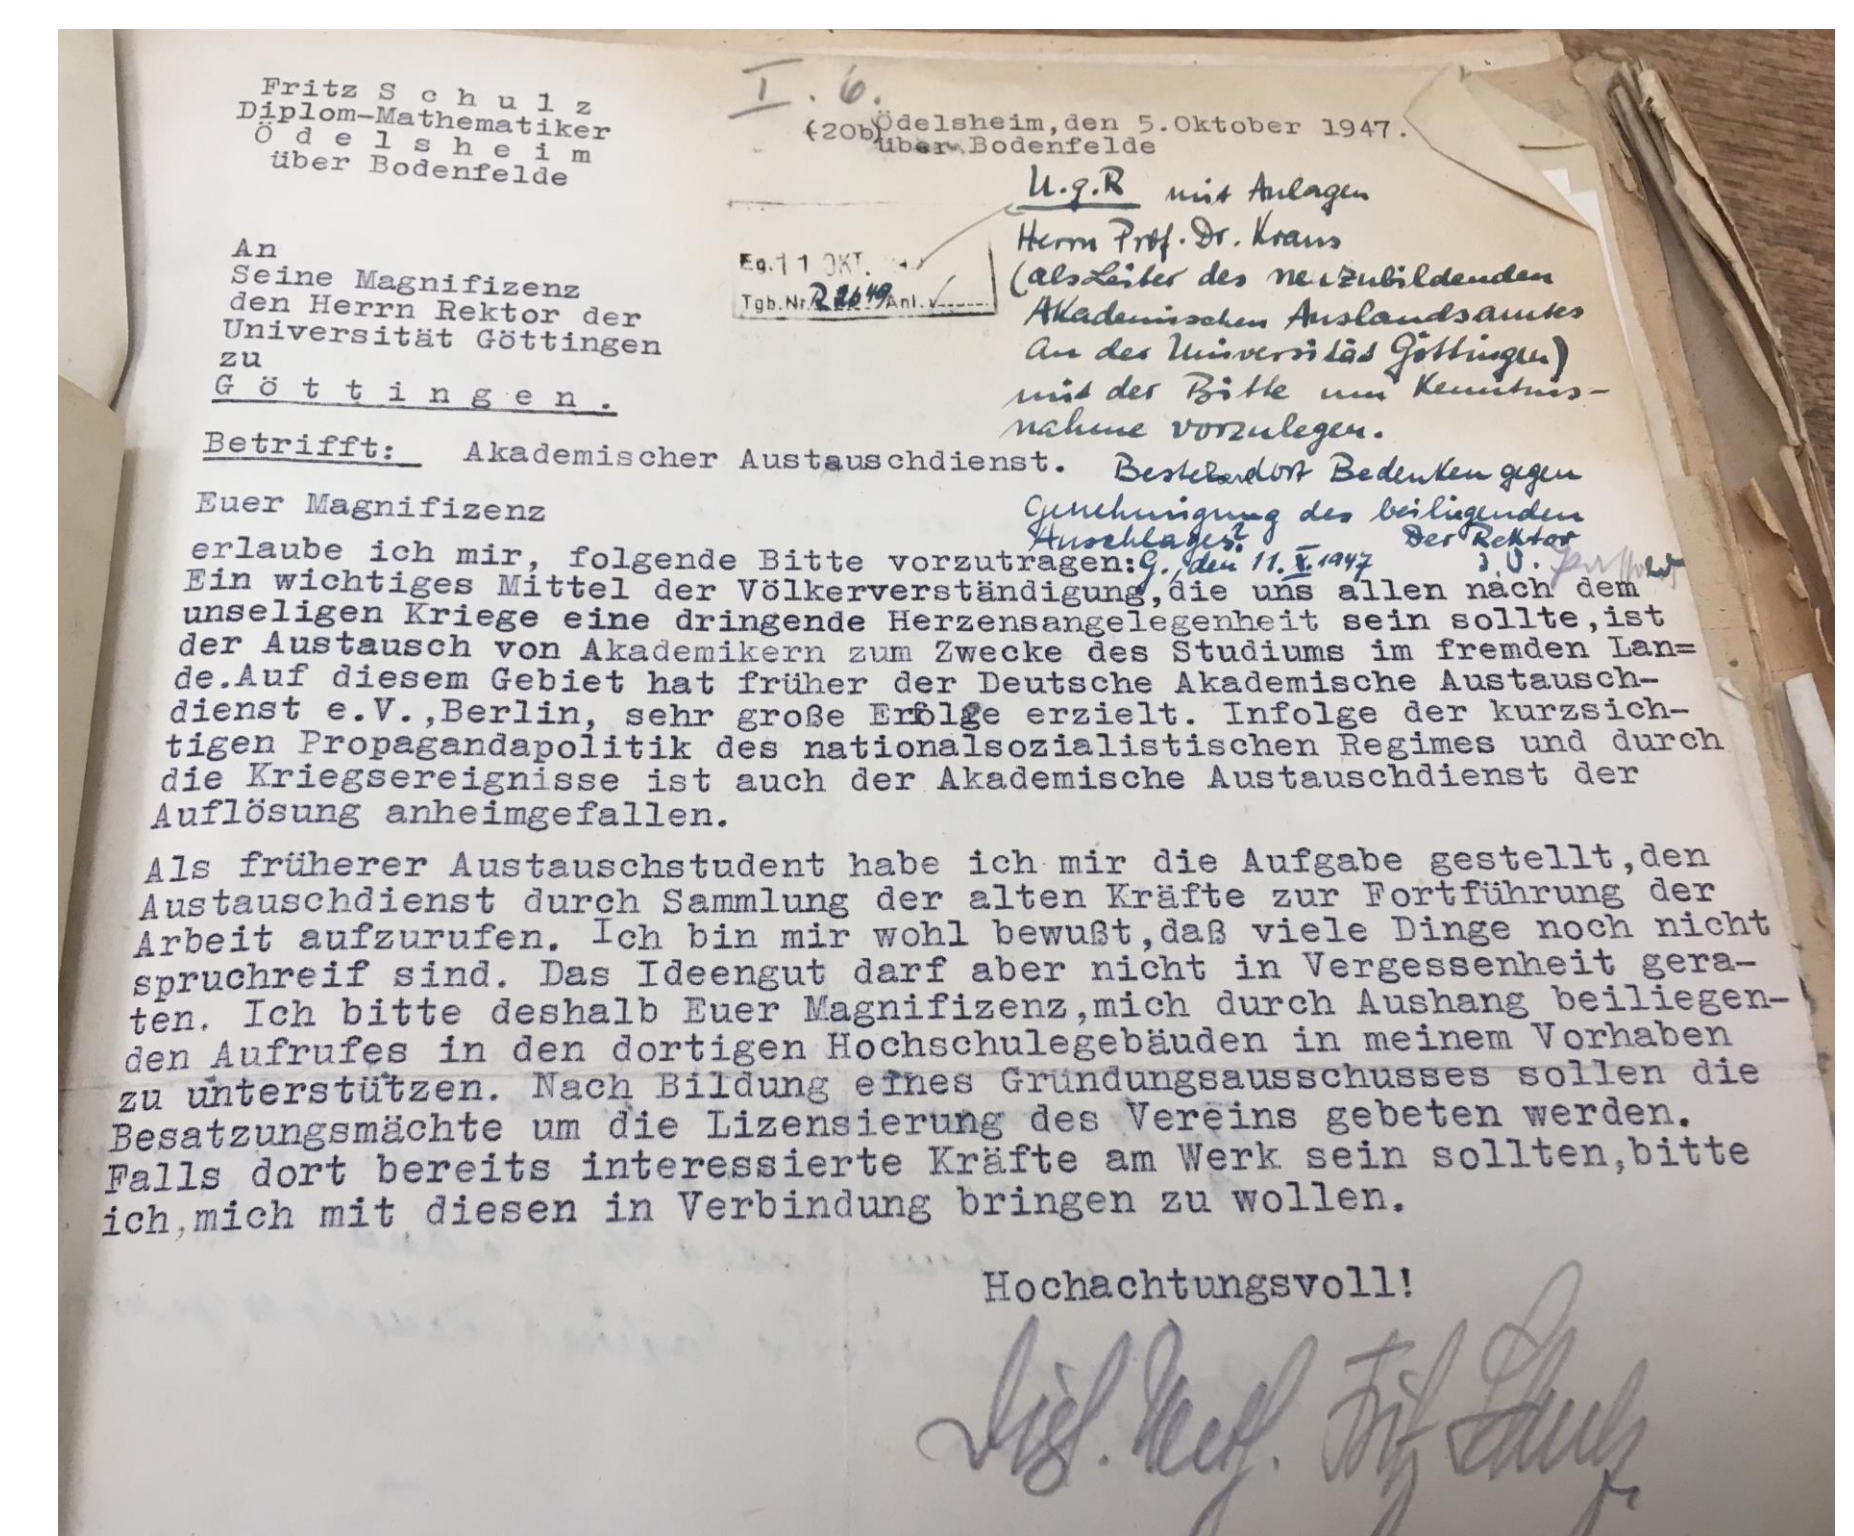 Fritz S c h u l z
Diplom-Mathematiker
Ö d e l s h e i m
über Bodenfelde
I. 6.
Ödelsheim,den 5.Oktober 1947.
(20b)über Bodenfelde
An
Seine Magnifizenz
den Herrn Rektor der
Universität Göttingen
zu
G ö t t i n g e n .
Eg. 11 OKT.
Tgb.Nr. Anl.
U.g.R mit Anlagen
Herrn Prof. Dr. Kraus
(als Leiter des neuzubildenden
Akademischen Auslandsamtes
an der Universität Göttingen)
mit der Bitte um Kenntnis-
nahme vorzulegen.
Bestehen dort Bedenken gegen
Genehmigung des beiliegenden
Anschlages? Der Rektor
G., den 11.X.1947 I.V.
Betrifft: Akademischer Austauschdienst.
Euer Magnifizenz
erlaube ich mir, folgende Bitte vorzutragen:
Ein wichtiges Mittel der Völkerverständigung,die uns allen nach dem
unseligen Kriege eine dringende Herzensangelegenheit sein sollte,ist
der Austausch von Akademikern zum Zwecke des Studiums im fremden Lan=
de.Auf diesem Gebiet hat früher der Deutsche Akademische Austausch-
dienst e.V.,Berlin, sehr große Erfolge erzielt. Infolge der kurzsich-
tigen Propagandapolitik des nationalsozialistischen Regimes und durch
die Kriegsereignisse ist auch der Akademische Austauschdienst der
Auflösung anheimgefallen.
Als früherer Austauschstudent habe ich mir die Aufgabe gestellt,den
Austauschdienst durch Sammlung der alten Kräfte zur Fortführung der
Arbeit aufzurufen. Ich bin mir wohl bewußt,daß viele Dinge noch nicht
spruchreif sind. Das Ideengut darf aber nicht in Vergessenheit gera-
ten. Ich bitte deshalb Euer Magnifizenz,mich durch Aushang beiliegen-
den Aufrufes in den dortigen Hochschulegebäuden in meinem Vorhaben
zu unterstützen. Nach Bildung eines Gründungsausschusses sollen die
Besatzungsmächte um die Lizensierung des Vereins gebeten werden.
Falls dort bereits interessierte Kräfte am Werk sein sollten,bitte
ich,mich mit diesen in Verbindung bringen zu wollen.
Hochachtungsvoll!
Dipl. Math. Fritz Schulz